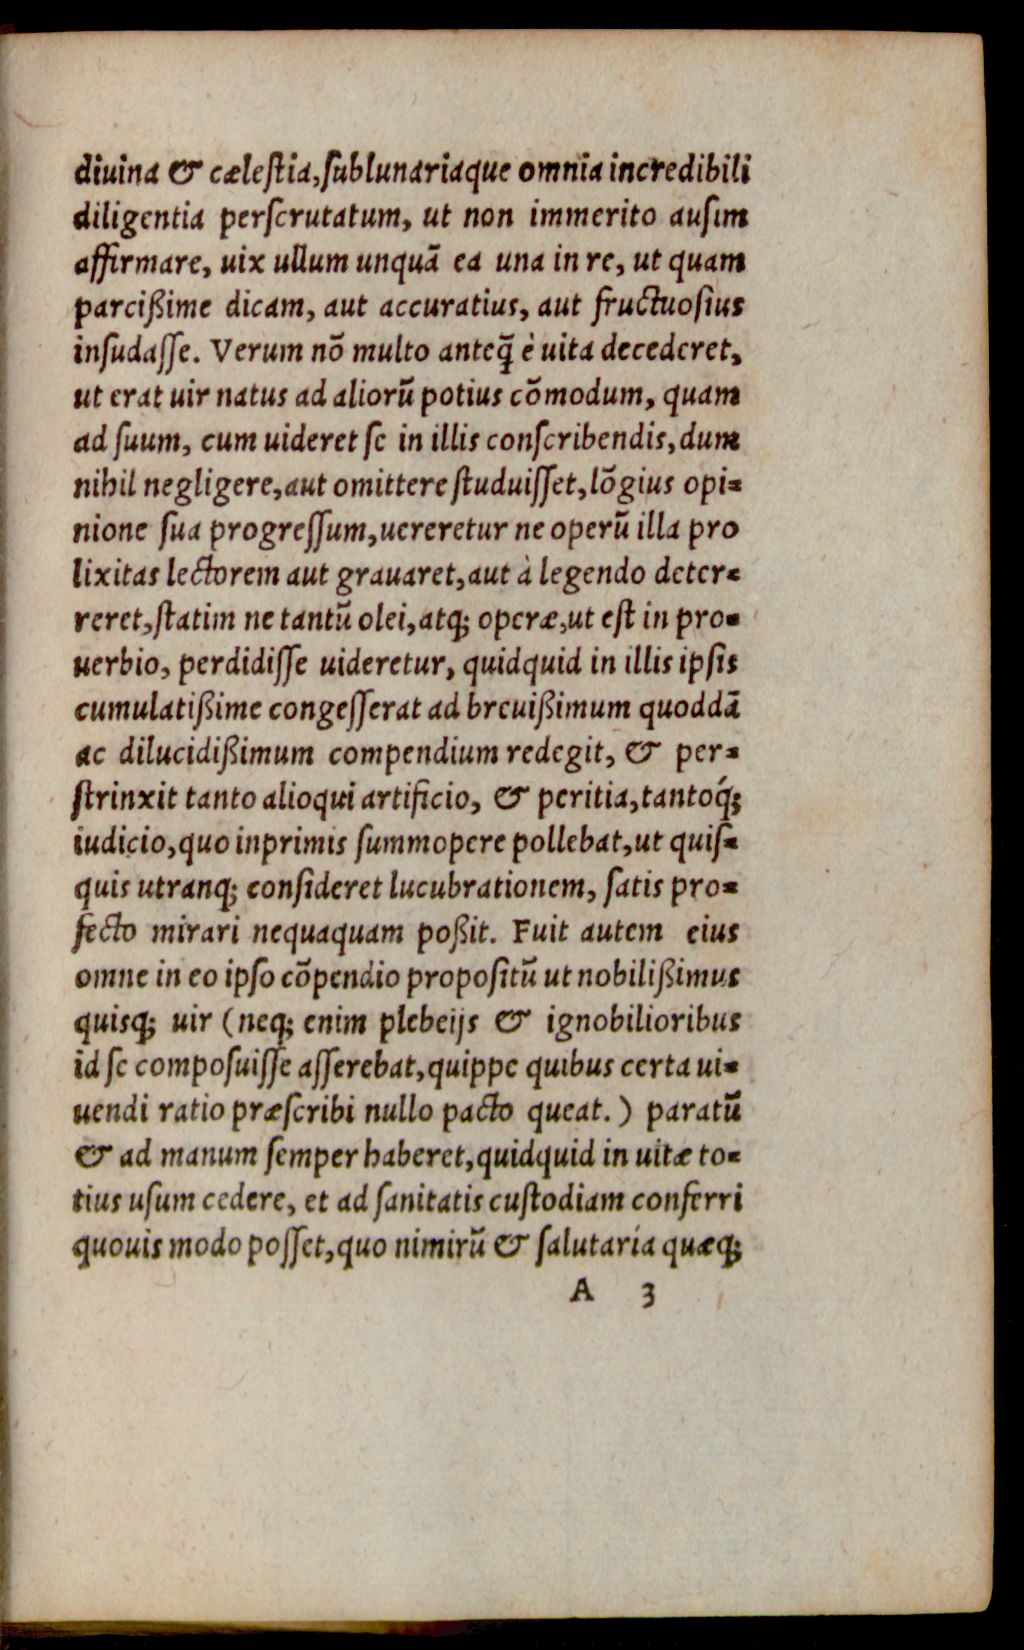 diuina & cæleſtia, ſublunariaque omnia incredibili
diligentia perſcrutatum, ut non immerito auſim
affirmare, uix ullum unquā ea una in re, ut quam
parcißime dicam, aut accuratius, aut fructuoſius
inſudaſſe. Verum nō multo anteq̄ è uita decederet,
ut erat uir natus ad aliorū potius cōmodum, quam
ad ſuum, cum uideret ſe in illis conſcribendis, dum
nihil negligere, aut omittere ſtuduiſſet, lōgius opi=
nione ſua progreſſum, uereretur ne operū illa pro
lixitas lectorem aut grauaret, aut à legendo deter=
reret, ſtatim ne tantū olei, atq; operæ, ut eſt in pro=
uerbio, perdidiſſe uideretur, quidquid in illis ipſis
cumulatißime congeſſerat ad breuißimum quoddā
ac dilucidißimum compendium redegit, & per=
ſtrinxit tanto alioqui artificio, & peritia, tantoq́;
iudicio, quo inprimis ſummopere pollebat, ut quiſ=
quis utranq; conſideret lucubrationem, ſatis pro=
fecto mirari nequaquam poßit. Fuit autem eius
omne in eo ipſo cōpendio propoſitū ut nobilißimus
quisq; uir (neq; enim plebeijs & ignobilioribus
id ſe compoſuiſſe aſſerebat, quippe quibus certa ui=
uendi ratio præſcribi nullo pacto queat.) paratū
& ad manum ſemper haberet, quidquid in uitæ to=
tius uſum cedere, et ad ſanitatis cuſtodiam conferri
quouis modo poſſet, quo nimirū & ſalutaria quæq;
A 3